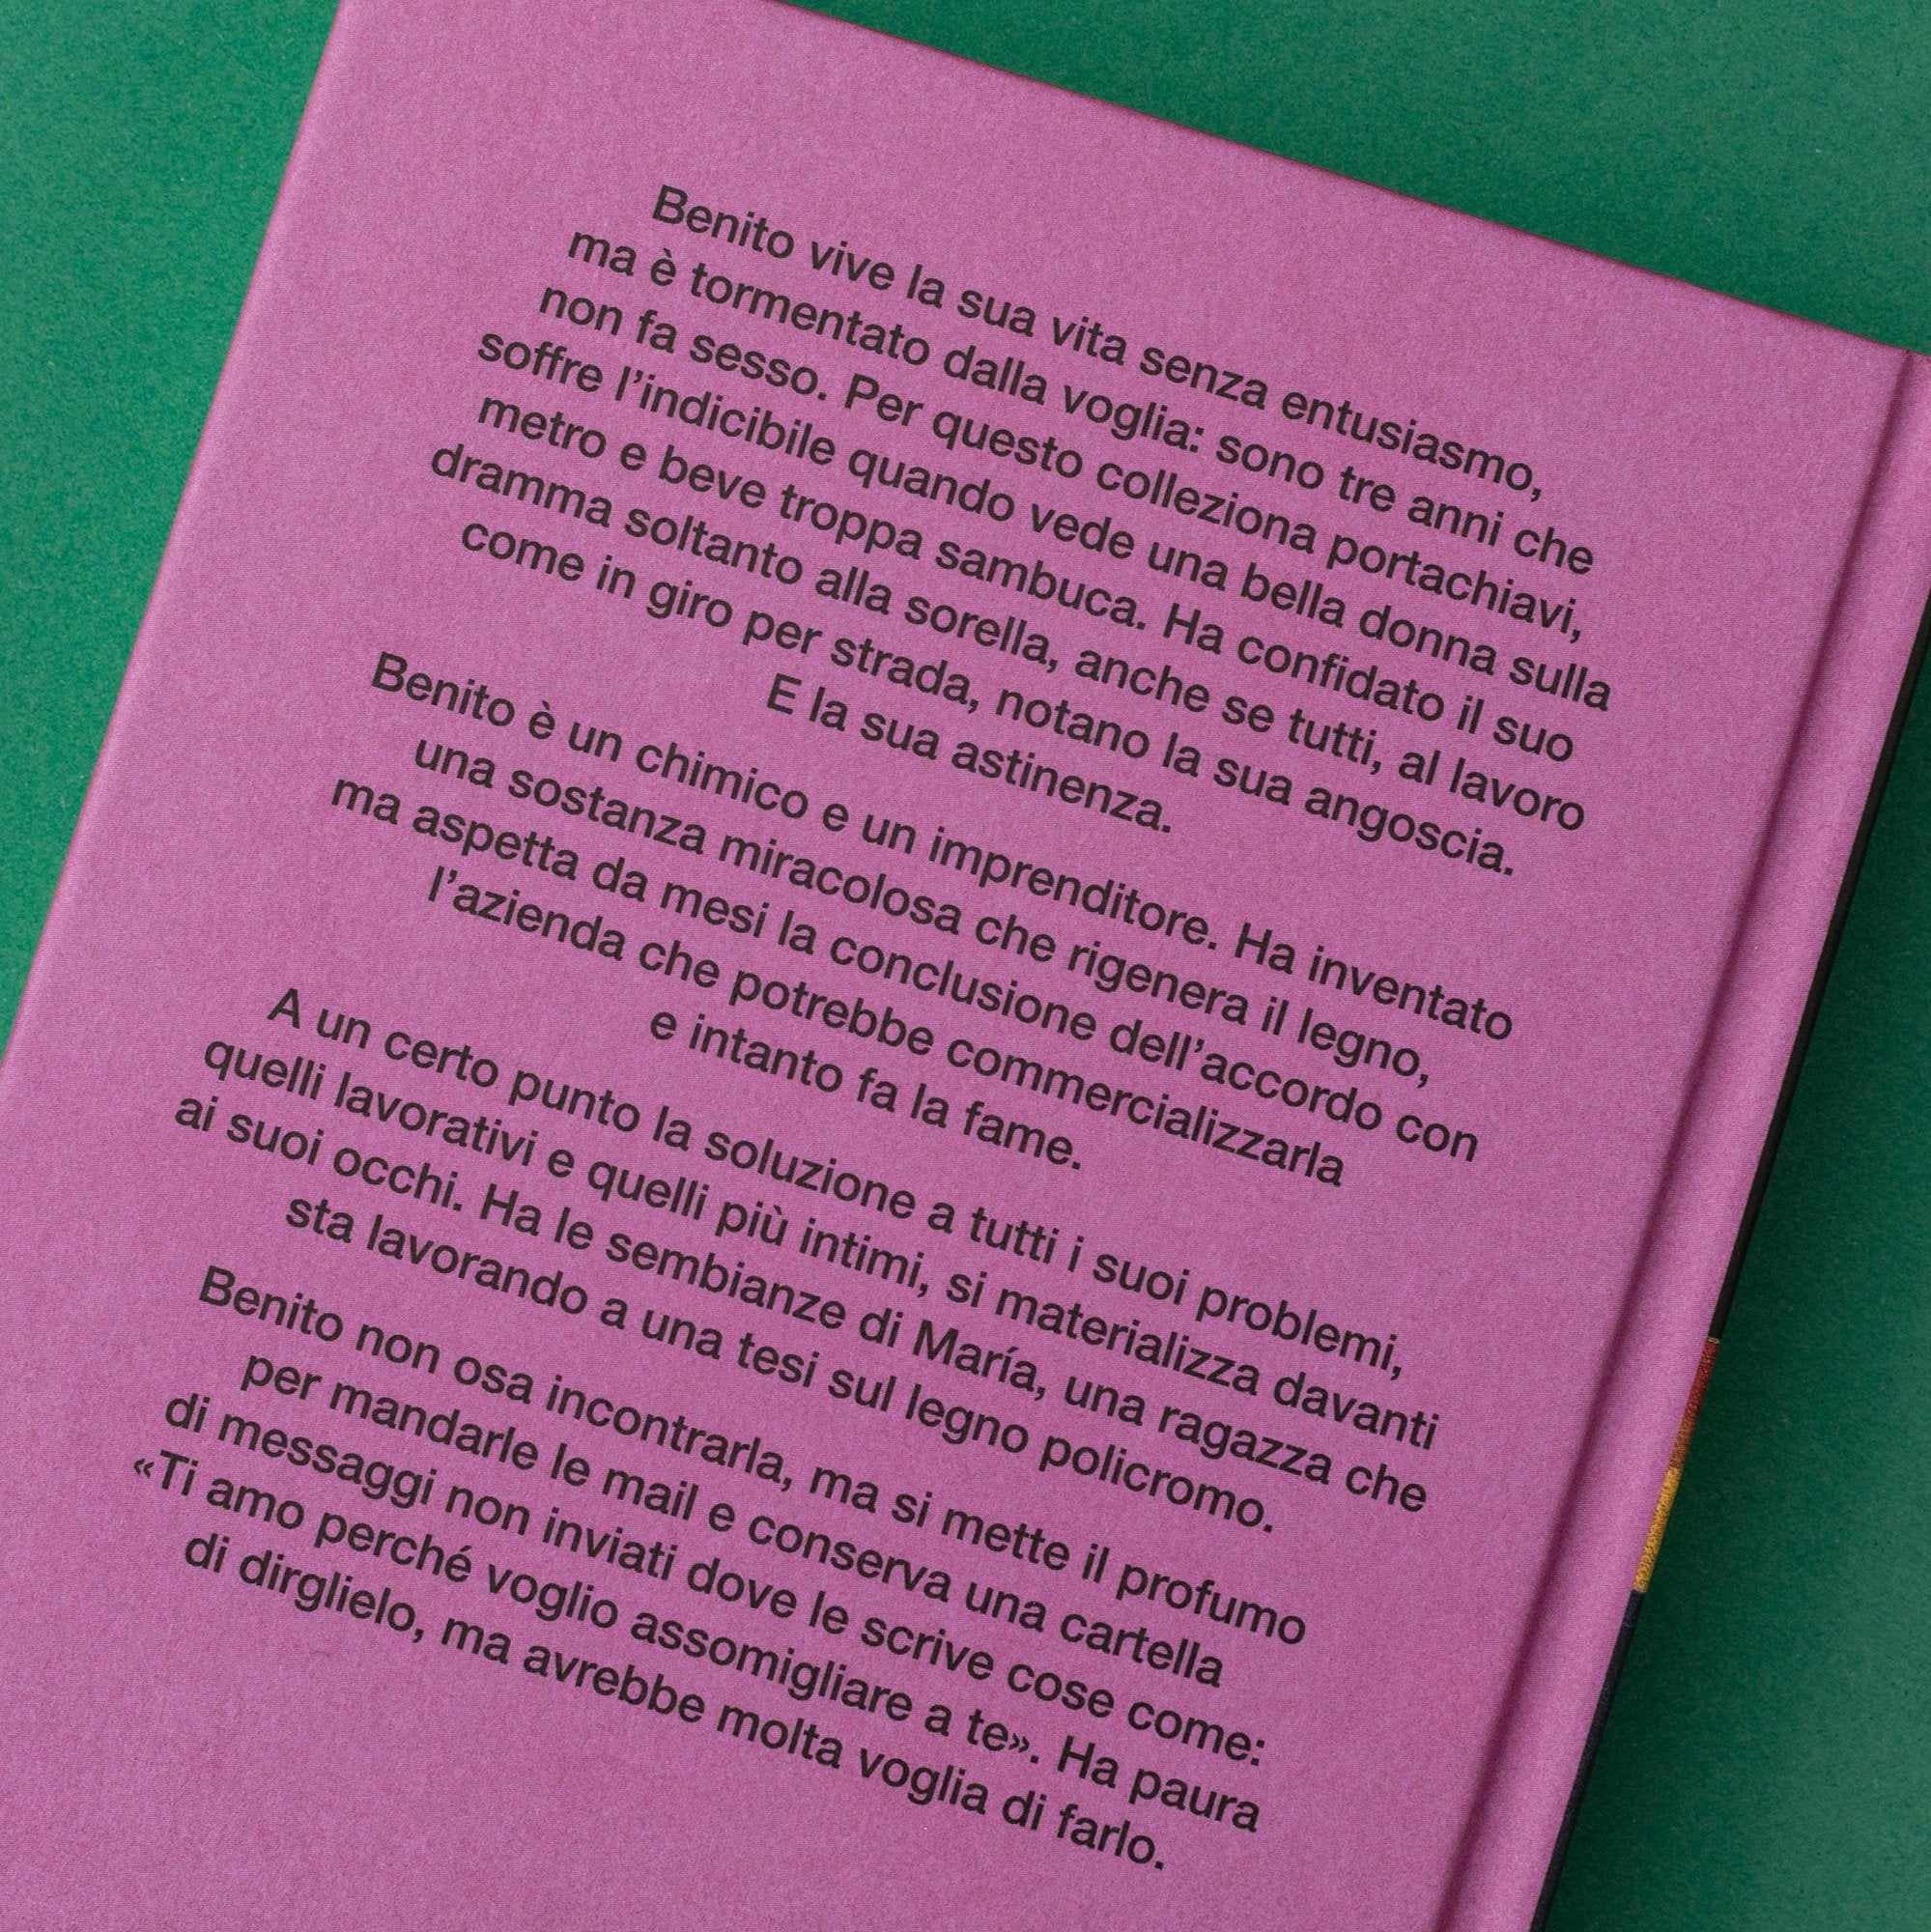 Benito vive la sua vita senza entusiasmo,
ma è tormentato dalla voglia: sono tre anni che
non fa sesso. Per questo colleziona portachiavi,
soffre l’indicibile quando vede una bella donna sulla
metro e beve troppa sambuca. Ha confidato il suo
dramma soltanto alla sorella, anche se tutti, al lavoro
come in giro per strada, notano la sua angoscia.
E la sua astinenza.
Benito è un chimico e un imprenditore. Ha inventato
una sostanza miracolosa che rigenera il legno,
ma aspetta da mesi la conclusione dell’accordo con
l’azienda che potrebbe commercializzarla
e intanto fa la fame.
A un certo punto la soluzione a tutti i suoi problemi,
quelli lavorativi e quelli più intimi, si materializza davanti
ai suoi occhi. Ha le sembianze di María, una ragazza che
sta lavorando a una tesi sul legno policromo.
Benito non osa incontrarla, ma si mette il profumo
per mandarle le mail e conserva una cartella
di messaggi non inviati dove le scrive cose come:
«Ti amo perché voglio assomigliare a te». Ha paura
di dirglielo, ma avrebbe molta voglia di farlo.